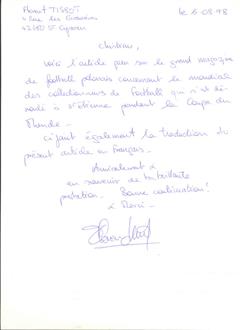 Florent TISSOT
4 Rue des
42160 St Cyprien
le 6-08-98
Christian,
voici l'article paru sur le grand magazine
de football polonais concernant le mondial
des collectionneurs de Football qui s'est dé-
roulé à St Etienne pendant la Coupe du
Monde -
ci-joint également la traduction du
présent article en Français -
Amicalement &
en souvenir de ta brillante
prestation - Bonne continuation !
& Merci -